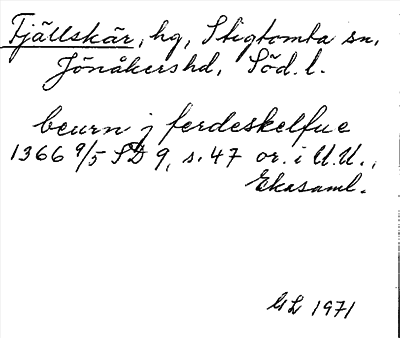 Fjällskär, hg, Stigtomta sn,
Jönåkers hd, Söd. l.
beurn j ferdeskelfue
1366 9/5 SD 9, s. 47 or. i U.U.,
Ekasaml.
GL 1971